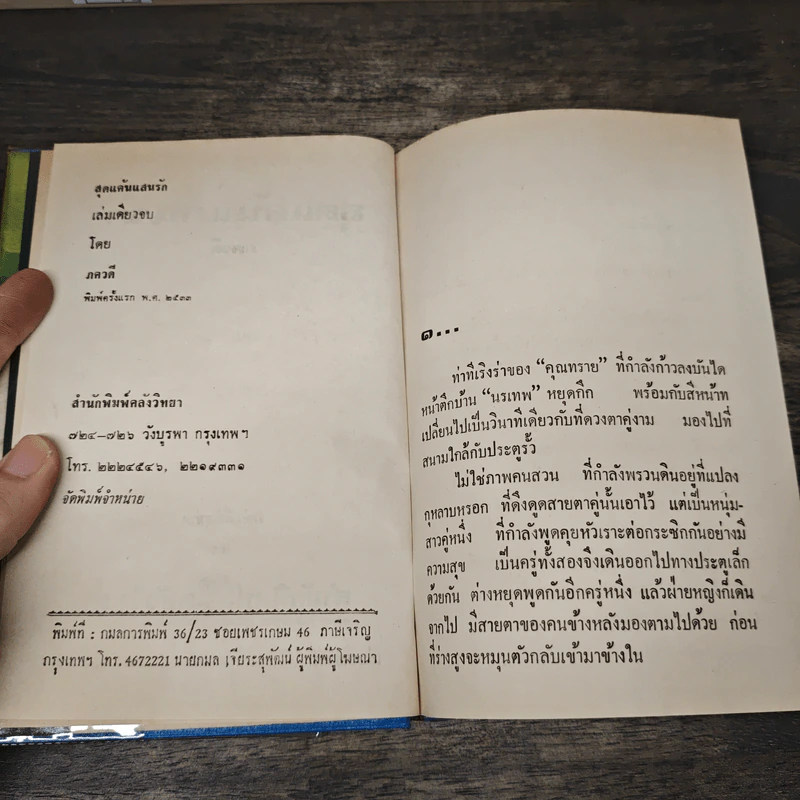 สุดแค้นแสนรัก
เล่มเดียวจบ
โดย
ภควดี
พิมพ์ครั้งแรก พ.ศ. ๒๕๓๓
สำนักพิมพ์คลังวิทยา
๗๒๔—๗๒๖ วังบูรพา กรุงเทพฯ
โทร. ๒๒๒๔๕๔๖, ๒๒๑๙๓๓๑
จัดพิมพ์จำหน่าย
พิมพ์ที่ : กมลการพิมพ์ 36/23 ซอยเพชรเกษม 46 ภาษีเจริญ
กรุงเทพฯ โทร. 4672221 นายกมล เจียระสุพัฒน์ ผู้พิมพ์ผู้โฆษณา
๑...
ท่าทีเริงร่าของ “คุณทราย” ที่กำลังก้าวลงบันได
หน้าตึกบ้าน “นรเทพ” หยุดกึก พร้อมกับสีหน้าท
เปลี่ยนไปเป็นวินาทีเดียวกับที่ดวงตาคู่งาม มองไปที่
สนามใกล้กับประตูรั้ว
ไม่ใช่ภาพคนสวน ที่กำลังพรวนดินอยู่ที่แปลง
กุหลาบหรอก ที่ดึงดูดสายตาคู่นั้นเอาไว้ แต่เป็นหนุ่ม-
สาวคู่หนึ่ง ที่กำลังพูดคุยหัวเราะต่อกระซิกกันอย่างมี
ความสุข เป็นครู่ทั้งสองจึงเดินออกไปทางประตูเล็ก
ด้วยกัน ต่างหยุดพูดกันอีกครู่หนึ่ง แล้วฝ่ายหญิงก็เดิน
จากไป มีสายตาของคนข้างหลังมองตามไปด้วย ก่อน
ที่ร่างสูงจะหมุนตัวกลับเข้ามาข้างใน